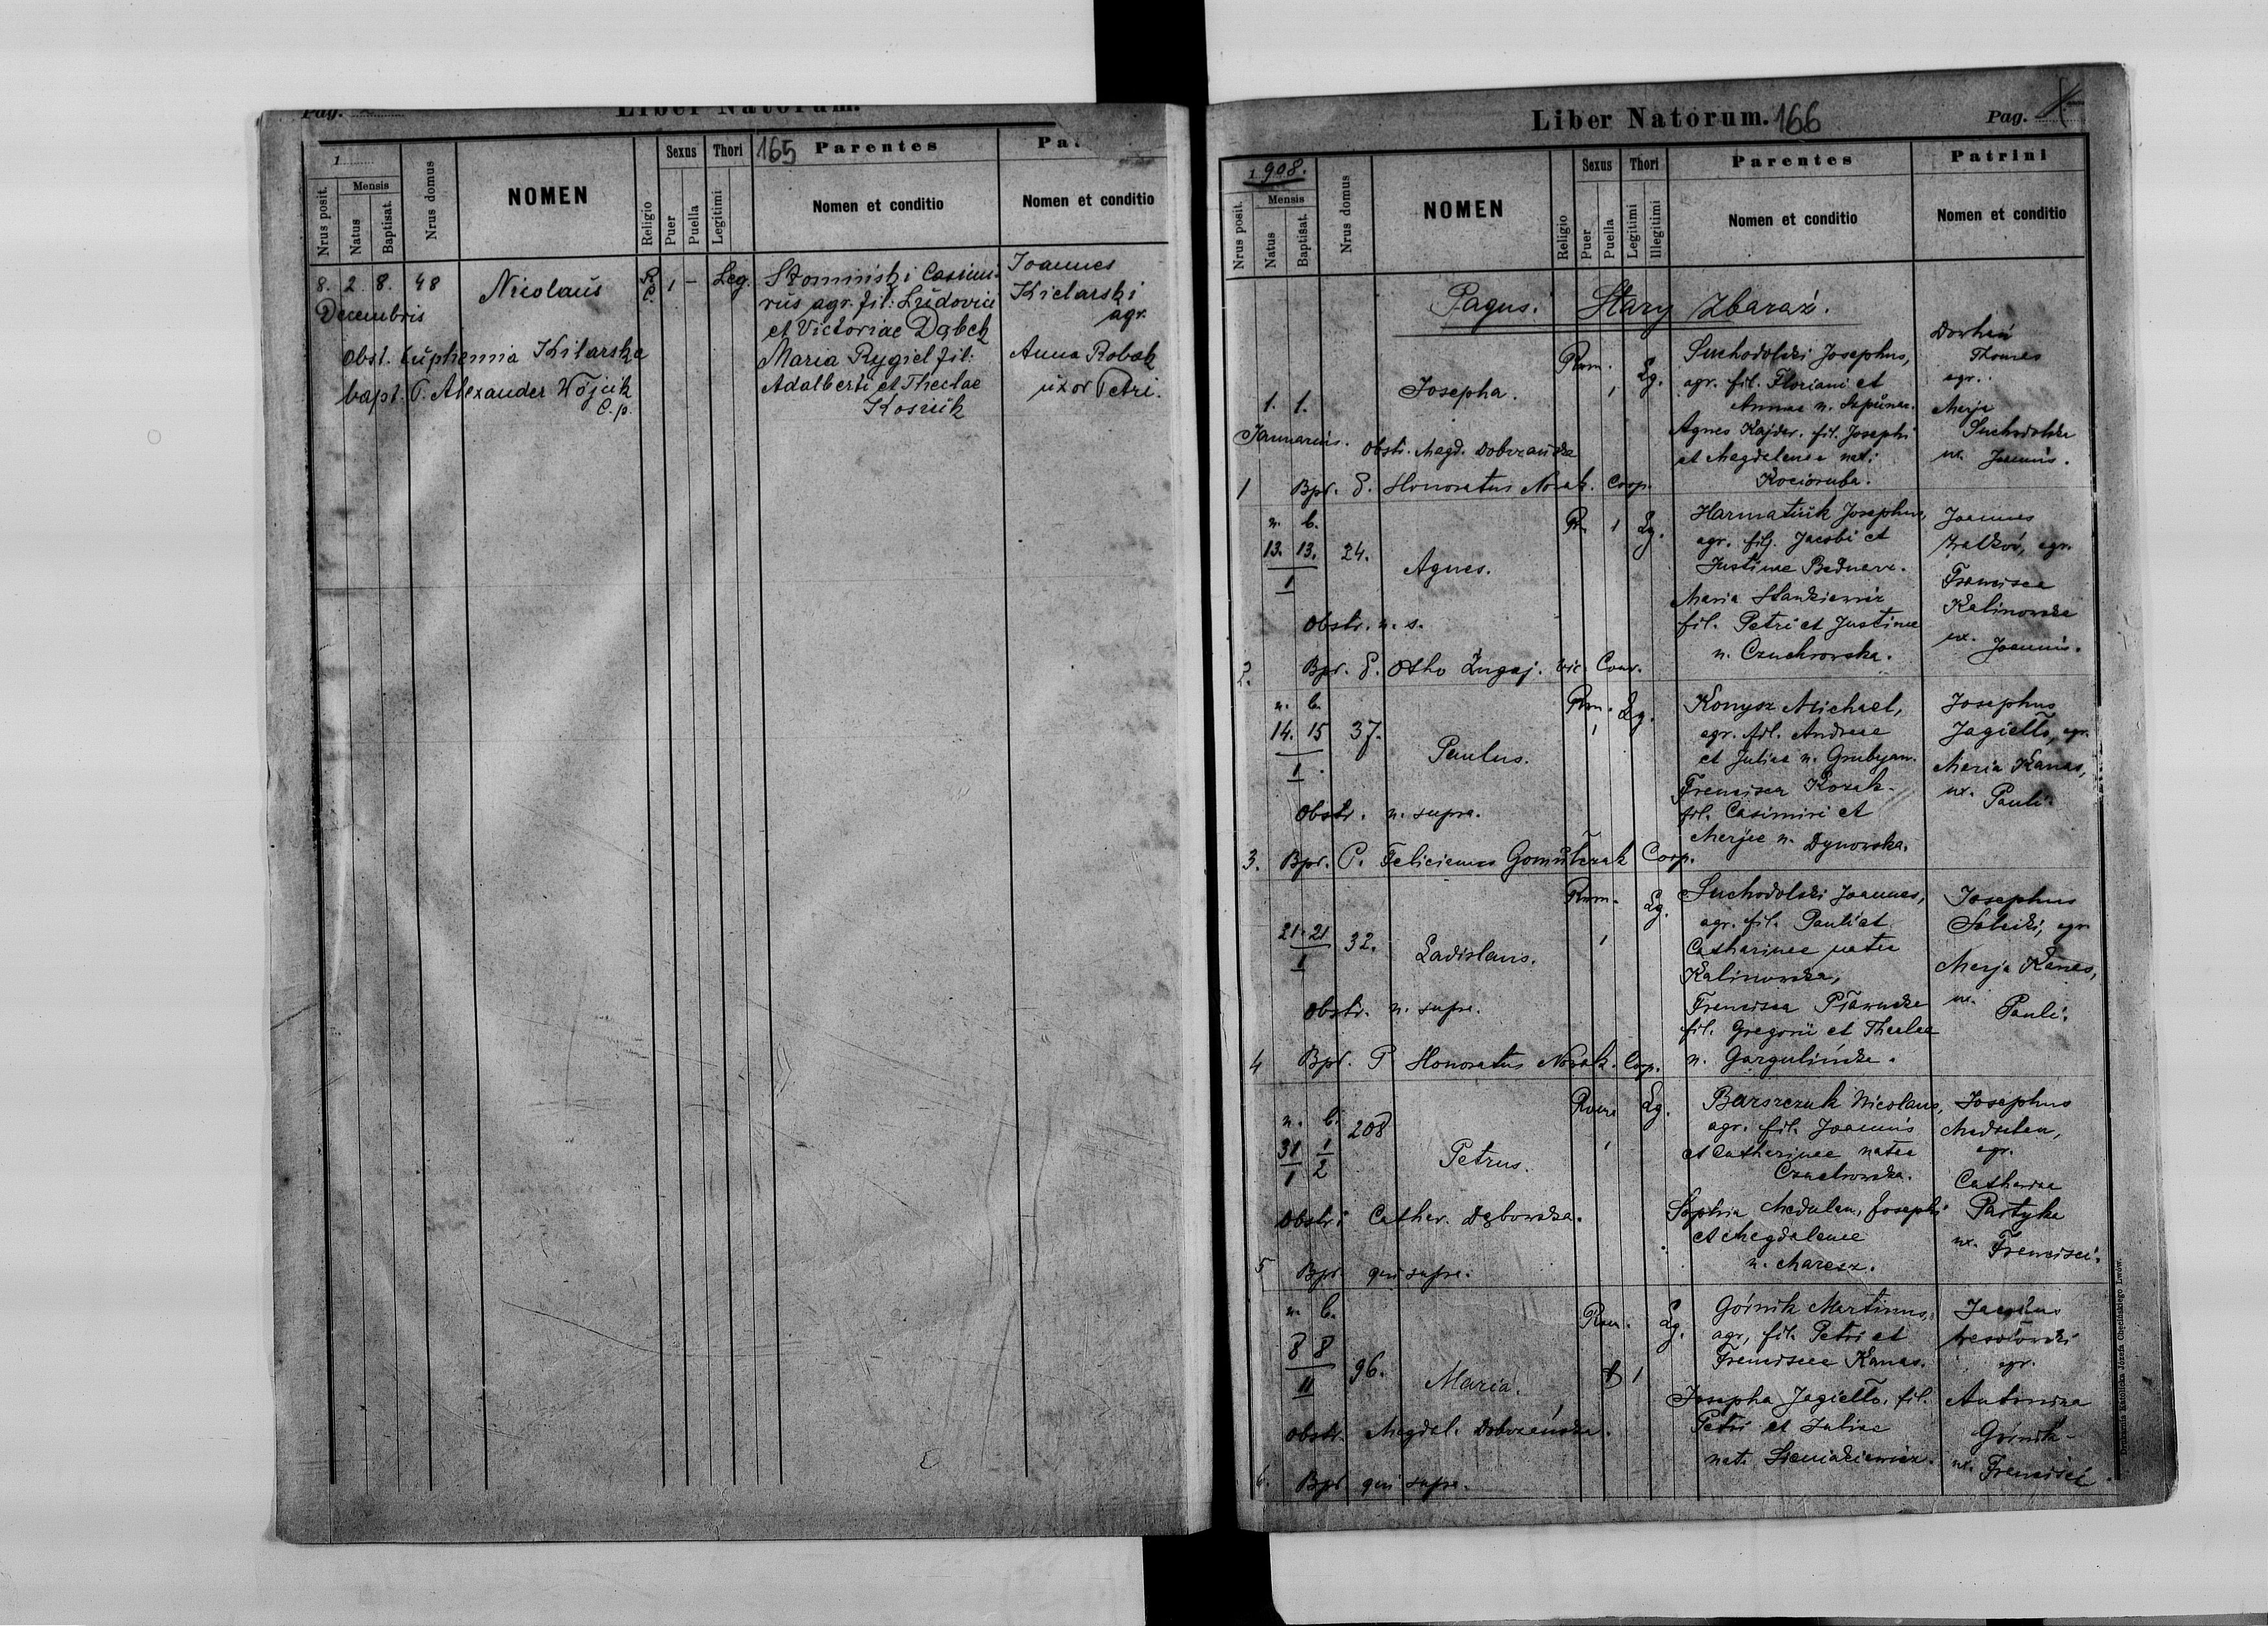 Pag.
Liber Natorum.
1
Nrus posit.
Mensis
Natus
Baptisat.
Nrus domus
NOMEN
Religio
Sexus
Puer
Puella
Thori
Legitimi
165
Parentes
Nomen et conditio
Pat
Nomen et conditio
8. 2 8. 48 Nicolaus R. C. 1 - Leg.
Decembris
obst. Euphemia Kilarska
bapt. P. Alexander Wójcik
C. p.
Słomiński Casimi-
rus agr. fil: Ludovici
et Victoriae Dąbek
Maria Rygiel fil:
Adalberti et Theclae
Kosiuk
Joannes
Kielarski
agr.
Anna Robak
uxor Petri.
Liber Natorum. 166
Pag.
1908.
Nrus posit.
Mensis
Natus
Baptisat.
Nrus domus
NOMEN
Religio
Sexus
Puer
Puella
Thori
Legitimi
Illegitimi
Parentes
Nomen et conditio
Patrini
Nomen et conditio
Pagus: Stary Zbaraż.
1. 1. Josepha. Rom. 1 Lg.
Januarius. Obstr. Magd. Dobrzańska
1 Bpt. P. Honoratus Novak. Coop.
Suchodolski Josephus,
agr. fil. Floriani et
Annae n.
Agnes Kajder. fil. Josephi
et Magdalenae nat:
Kocioruba.
Thomas
agr.
Marja
Suchodolska
ux. Joannis.
n. b.
13. 13. 24. Agnes. Rm 1 Lg.
1
Obstr. u. s.
2. Bpt. P. Otho Żugaj. vic. Conv.
Harmatiuk Josephus,
agr. fil. Jacobi et
Justinae Bednarz.
Maria Stankiewicz
fil. Petri et Justinae
n. Czuchrowska.
Joannes
agr.
Francisca
Kalinowska
ux. Joannis.
n. b.
14. 15 37. Paulus. Rm. 1 Lg.
1.
Obstr. u. supra.
3. Bpt. P. Felicianus Gomułczak Coop.
Konysz Michael,
agr. fil. Andreae
et Juliae n. Grubyan.
Francisca Kozak.
fil. Casimiri et
Marjae n. Dynowska.
Josephus
Jagiełło, agr.
Maria Kanas,
ux. Pauli.
21. 21 32. Ladislaus. Rom. 1 Lg.
1
Obstr. u. supra.
4 Bpt. P Honoratus Novak. Coop.
Suchodolski Joannes,
agr. fil. Pauli et
Catharinae natae
Kalinowska,
Francisca
fil. Gregorii et Theclae
n. Gargulińska.
Josephus
agr
Marja Kanas,
ux. Pauli.
n. b. 208
31 1 Petrus. Rom 1 Lg.
1 2
Obstr: Cathar. Dąbowska.
5 Bpt. qui supra.
Barszczuk Nicolaus,
agr. fil. Joannis
et Catharinae natae
Czuchrowska.
Sophia Madulan, Josephi
et Magdalenae
n. Maresz.
Josephus
Madulan,
agr.
Catharina
Partyka
ux. Francisci.
n. b.
8 8 96. Maria. Rom. 1 Lg.
II
Obstr. Magdal. Dobrzańska.
6. Bpt. qui supra.
Górnik Martinus,
agr, fil. Petri et
Franciscae Kanas.
Josepha Jagiełło, fil.
Petri et Juliae
nat.
agr.
Antonina
Górnik
ux. Francisci
Drukarnia Katolicka Józefa Chęcińskiego Lwów.